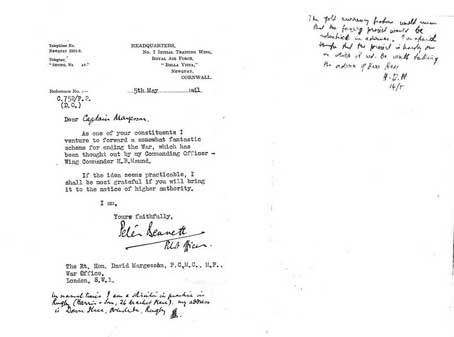 Telephone No.
Newquay
Telegrams,
HEADQUARTERS,
No. 1 Initial Training Wing,
Royal Air Force,
"Bella Vista,"
Newquay,
CORNWALL.
Reference No. :—
C.752/P.2.
(D.O.)
5th May 1941
Dear Captain Margesson
As one of your constituents I
venture to forward a somewhat fantastic
scheme for ending the War, which has
been thought out by my Commanding Officer -
Wing Commander H.R.Hound.
If the idea seems practicable, I
shall be most grateful if you will bring
it to the notice of higher authority.
I am,
Yours faithfully,
Peter Bennett
Pilot Officer.
The Rt. Hon. David Margesson, P.C.M.C., M.P.,
War Office,
London, S.W.1.
In normal times I am a solicitor in practice in
Rugby my address
is Rugby
The gold currency
that the project would be
in advance.
though that the project is hardly one
on which it wd. be worth taking
the
14/5